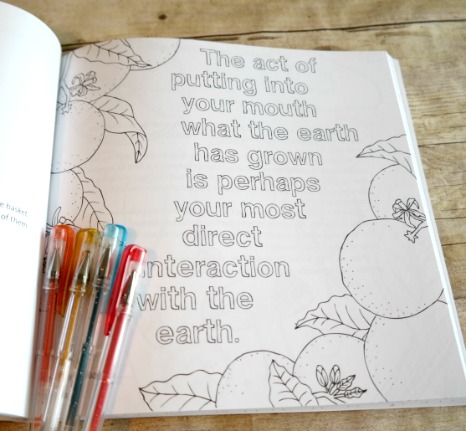 e basket
of them
The act of
putting into
your mouth
what the earth
has grown
is perhaps
your most
direct
interaction
with the
earth.